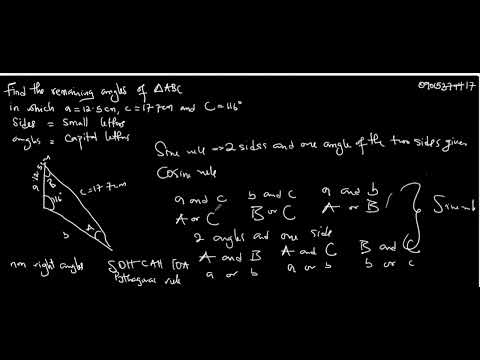 Find the remaining angles of △ABC
in which a=12.5cm, c=17.7cm and C=116°
Sides = Small letters
angles = Capital letters
Sine rule => 2 sides and one angle of the two sides given
Cosine rule
a and c b and c a and b
A or C B or C A or B
2 angles and one side
A and B A and C B and C
a or b a or b b or c
Sine rule
a=12.5cm
B
116
c=17.7cm
A
b
non right angles SOH CAH TOA
Pythagoras rule